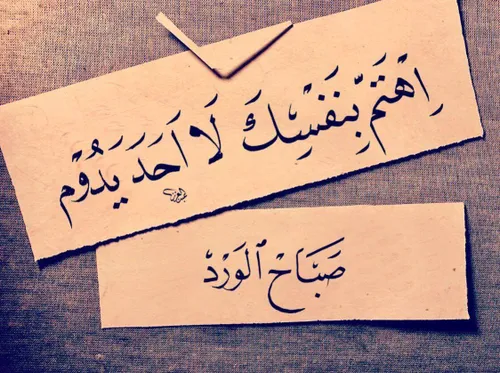 اِهْتَمْ بِنَفْسِكَ لَا اَحَدَ يَدُوْم
صَبَاحْ ٱلوَرْدْ